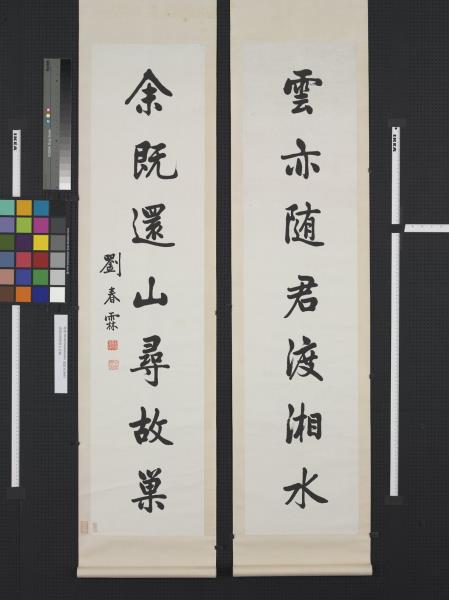 雲亦随君渡湘水
余既還山尋故巢
劉春霖
IKEA
IKEA